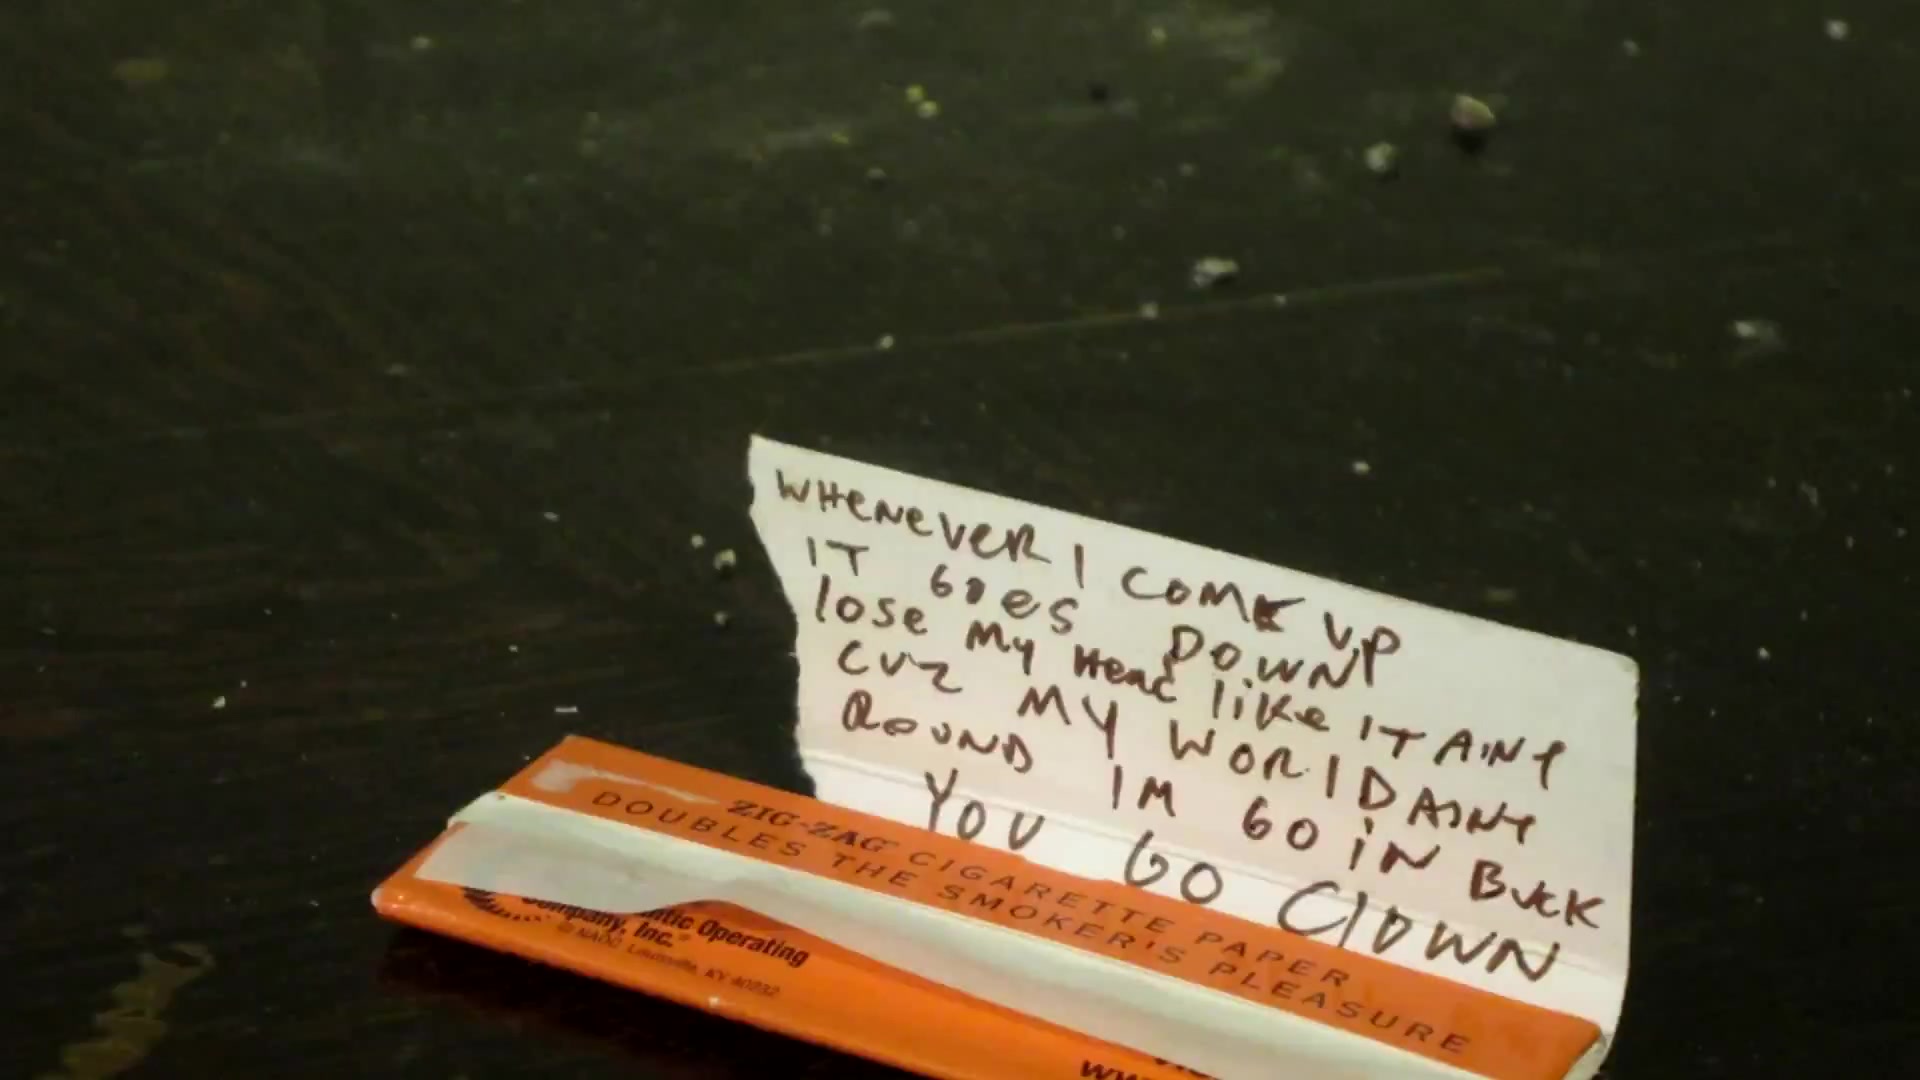 WHENEVER I COME UP
IT GOES DOWN
lose My Head like IT AiNT
CUZ MY WORlD AINT
ROUND IM GO IN BUCK
YOU GO ClOWN
ZIG-ZAG CIGARETTE PAPER
DOUBLES THE SMOKER'S PLEASURE
Operating
Company, Inc.
© NAOC, Louisville, KY 40232